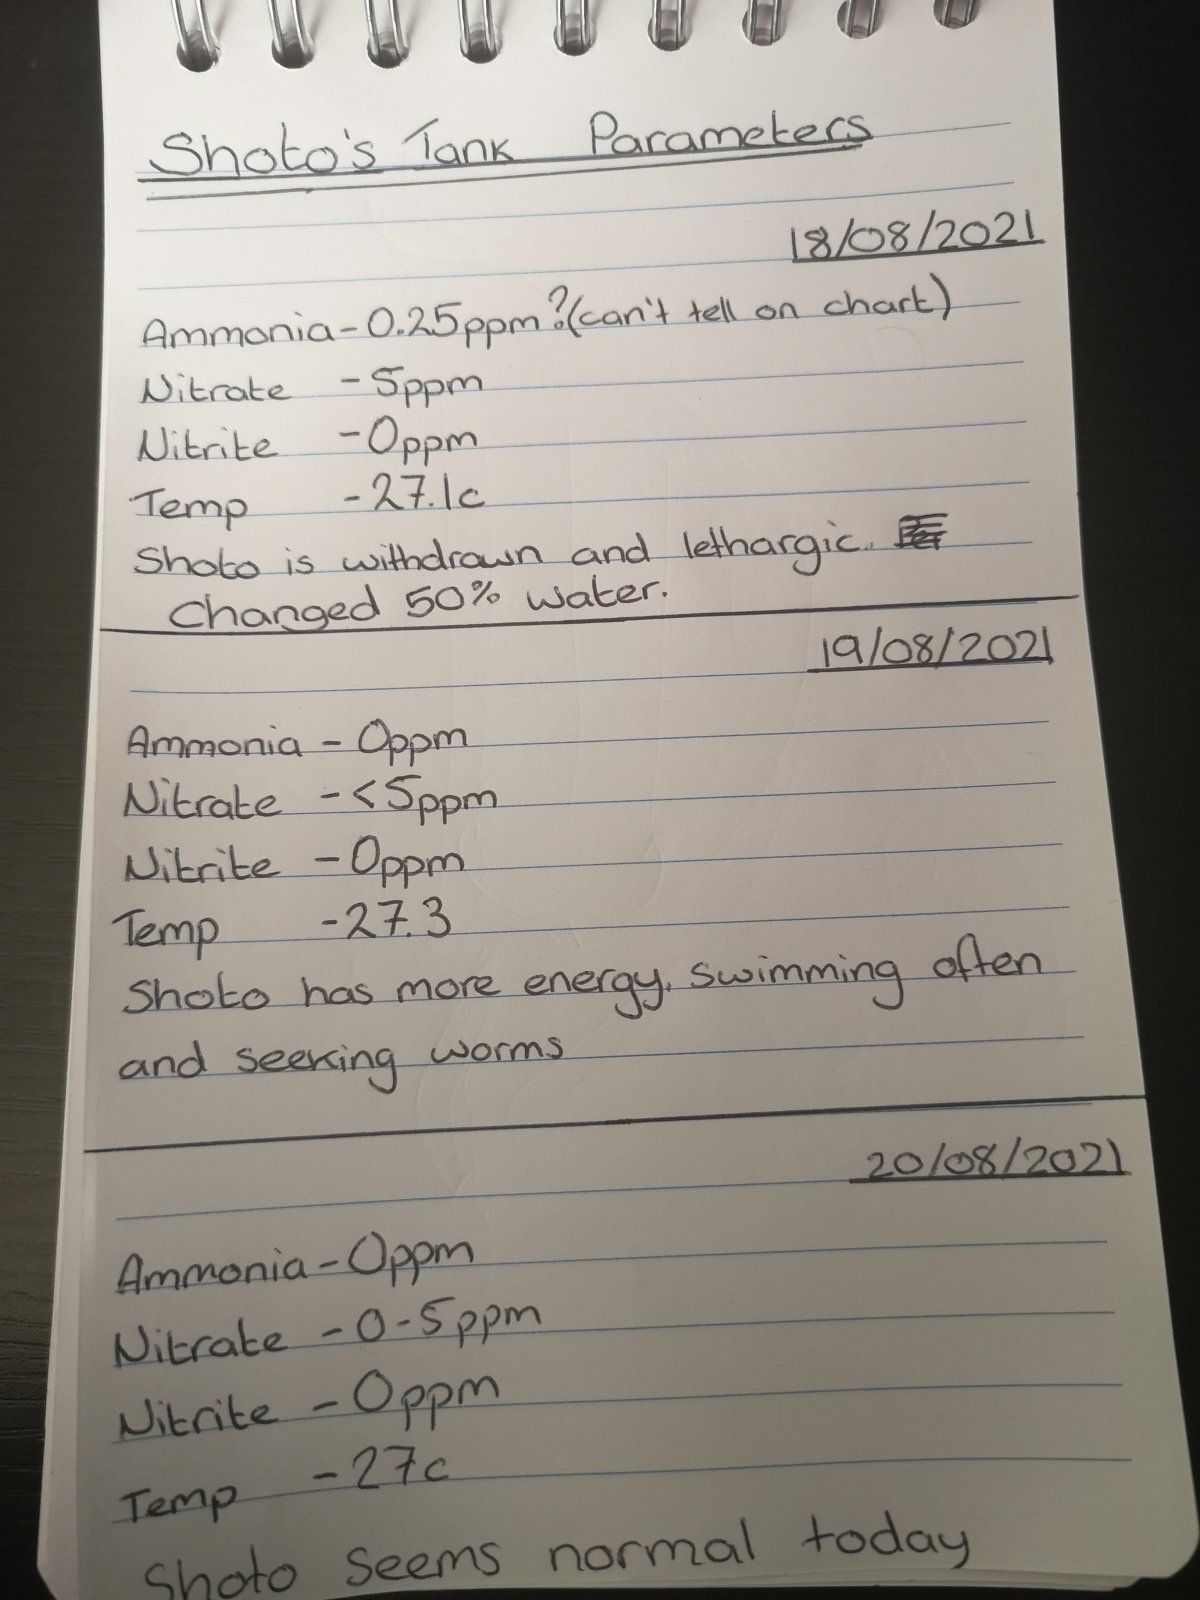 Shoto's Tank Parameters
18/08/2021
Ammonia - 0.25ppm? (can't tell on chart)
Nitrate - 5ppm
Nitrite - 0ppm
Temp - 27.1c
Shoto is withdrawn and lethargic.
Changed 50% water.
19/08/2021
Ammonia - 0ppm
Nitrate - <5ppm
Nitrite - 0ppm
Temp - 27.3
Shoto has more energy, swimming often
and seeking worms
20/08/2021
Ammonia - 0ppm
Nitrate - 0-5ppm
Nitrite - 0ppm
Temp - 27c
Shoto seems normal today